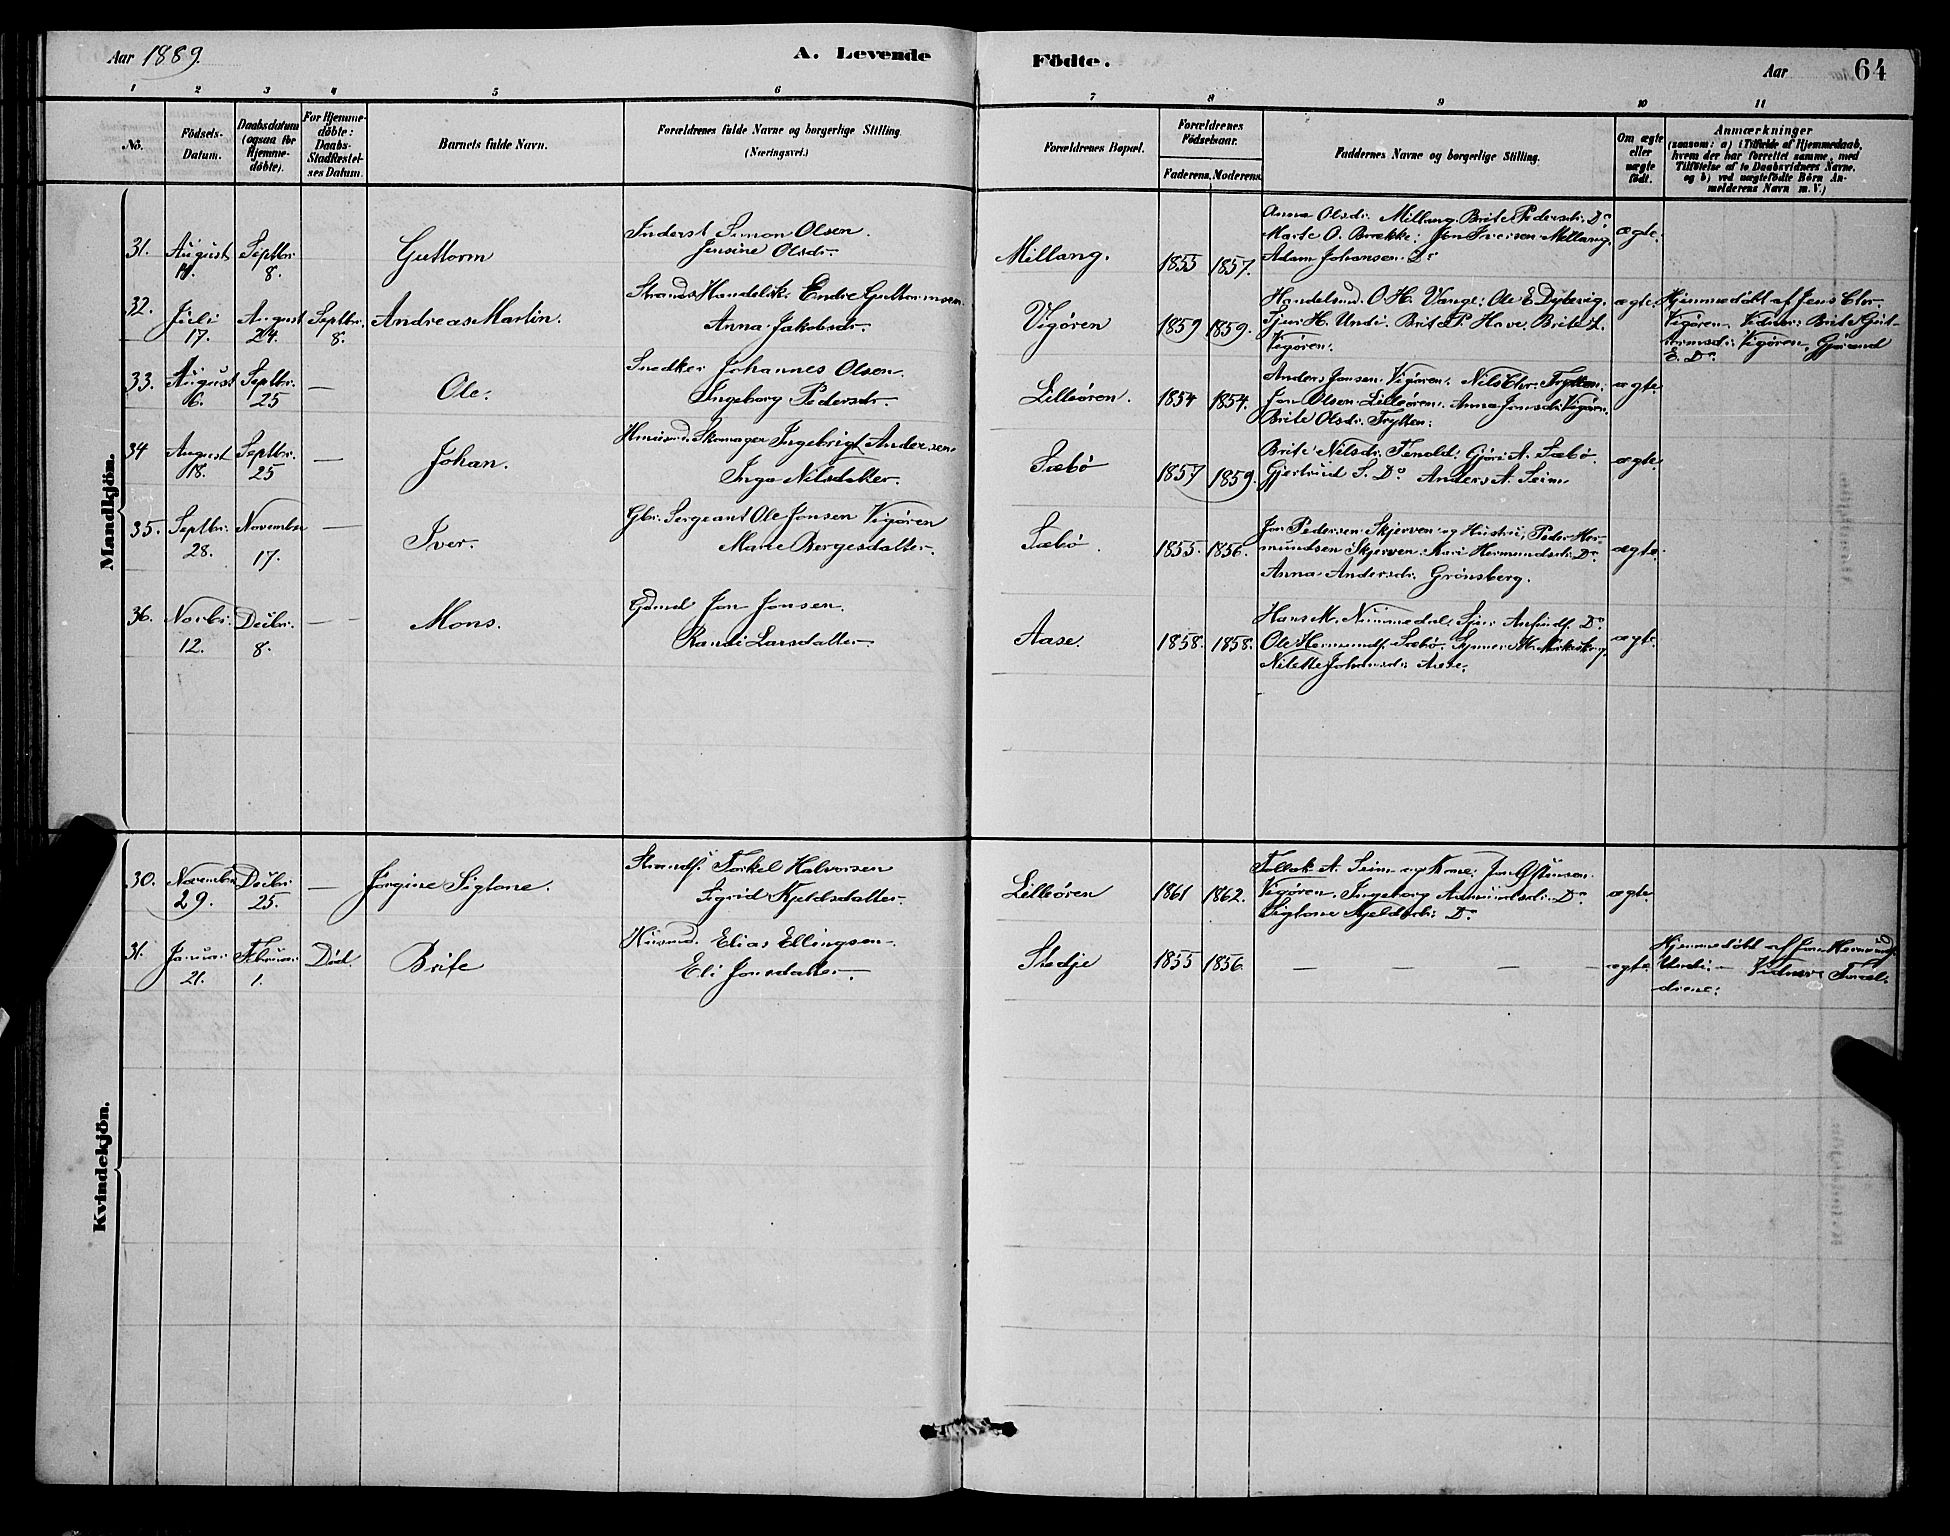 Aar 1889. A. Levende Födte. Aar 64
1 2 3 4 5 6 7 8 9 10 11
No.
Födsels-
Datum.
Daabsdatum
(ogsaa for
Hjemme-
döbte).
For Hjemme-
döbte:
Daabs-
Stadfæstel-
ses Datum.
Barnets fulde Navn.
Forældrenes fulde Navne og borgerlige Stilling.
(Næringsvei.)
Forældrenes Bopæl.
Forældrenes
Födselsaar.
Faderens. Moderens.
Faddernes Navne og borgerlige Stilling.
Om ægte
eller
uægte
födt.
Anmærkninger
(saasom: a) i Tilfælde af Hjemmedaab,
hvem der har forrettet samme, med
Tilföielse af to Daabsvidners Navne,
og b) ved uægtefödte Börn An-
melderens Navn m. V.)
Mandkjön.
31. August Septbr. 8. Guttorm
Inderst Simon Olsen.
Jensine Olsdr.
Millang. 1855 1857.
Anna Olsdr. Millang. Brite Pedersdr. Do
Marte O. Brække. Jon Iversen Millang.
Adam Johansen Do
ægte.
32. Juli 17. August 24. Septbr. 8. Andreas Martin.
Strands. Handelsk. Endre Guttormsen.
Anna Jakobsdr.
Vigören 1859 1859.
Handelsmd. O. H. Vange. Ole E.
H. Undi. Brite P. Have. Brite L.
Vigören.
ægte.
Hjemmedöbt af Jens Chr.
Vigören. Vidner: Brite Gut-
tormsdr. Vigören.
E. Do
33. August 6. Septbr. 25 — Ole.
Snedker Johannes Olsen.
Ingeborg Pedersdr.
Lilleören. 1854 1854.
Anders Jonsen Vigören. Nils Chr. Trytten.
Jon Olsen Lilleören. Anna Jonsdr. Vigören.
Brite Olsdr. Trytten.
ægte.
34 August 18. Septbr. 25 — Johan.
Skomager Ingebrigt Andersen.
Inga Nilsdatter.
Sæbö 1857 1859.
Brite Nilsdr. Tenold. Gjöri A. Sæbö.
Gjertrud S. Do Anders A. Seim
ægte.
35. Septbr. 28. November 17. — Iver.
Gbr. Sergeant Ole Jonsen Vigören
Marie Bergesdatter.
Sæbö. 1855. 1856.
Jon Pedersen Skjerven og Hustru, Peder Her-
mundsen Skjerven. Kari Hermundsdr. Do
Anna Andersdr. Grönsberg.
ægte.
36. Novbr. 12. Decbr. 8. — Mons.
Gdmd Jon Jonsen.
Randi Larsdatter.
Aase. 1858. 1858.
Hans M. Nummedal. Do
Ole Hermundsn. Sæbö.
Nilette Johansdr. Aase.
ægte.
Kvindekjön.
30. November 29. Decbr. 25. — Jörgine Siglone.
Torkel Halvorsen
Sigrid Kjeldsdatter.
Lilleören 1861 1862.
Tollak A. Seim og Kone. Jon Östensen
Vigören. Ingeborg Amundsdr. Do
Siglone Kjeldsdr. Do
ægte
31. Januar 21. Februar 1. Död. Brite
Husmd. Elias Ellingsen.
Eli Jonsdatter.
Stedje 1855 1856.
— — — —
ægte.
Hjemmedöbt af Jon Hermunds.
Undi. — Vidner Foræl-
drene.